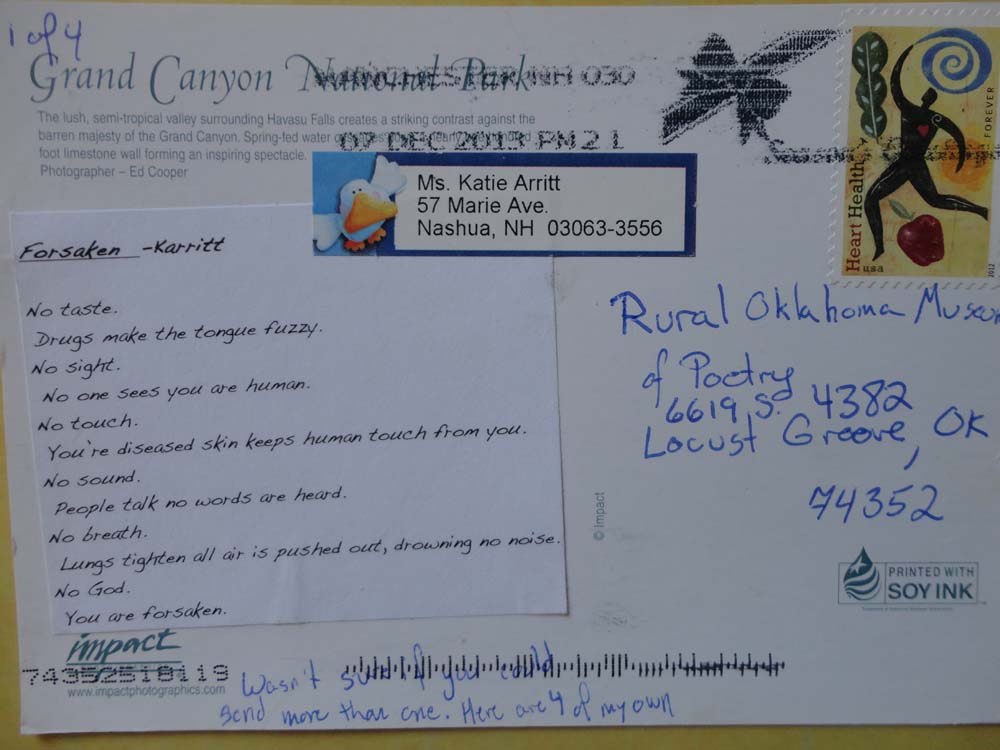 1 of 4
Grand Canyon National Park
The lush, semi-tropical valley surrounding Havasu Falls creates a striking contrast against the
barren majesty of the Grand Canyon. Spring-fed water
foot limestone wall forming an inspiring spectacle.
Photographer – Ed Cooper
NH 030
07 DEC 2013 PM 2 L
Heart Health
usa
FOREVER
2012
Ms. Katie Arritt
57 Marie Ave.
Nashua, NH 03063-3556
Forsaken -Karritt
No taste.
Drugs make the tongue fuzzy.
No sight.
No one sees you are human.
No touch.
You're diseased skin keeps human touch from you.
No sound.
People talk no words are heard.
No breath.
Lungs tighten all air is pushed out, drowning no noise.
No God.
You are forsaken.
Rural Oklahoma Museum
of Poetry
6619 S. 4382
Locust Groove, OK
74352
© Impact
PRINTED WITH
SOY INK
impact
74352518119
www.impactphotographics.com
Wasn't sure if you could
send more than one. Here are 4 of my own